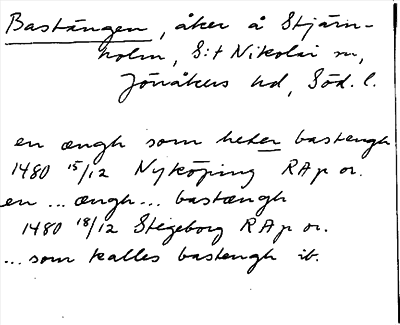 Bastängen, åker å Stjärn-
holm, S:t Nikolai sn,
Jönåkers hd, Söd. l.
en ængh som heter bastengh
1480 15/12 Nyköping RAp or.
en ... ængh... bastængh
1480 18/12 Stegeborg RAp or.
... som kalles bastengh ib.